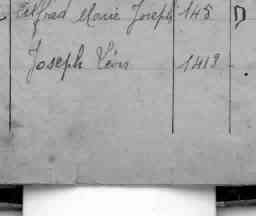 Alfred Marie Joseph 148 D
Joseph Léon 1419